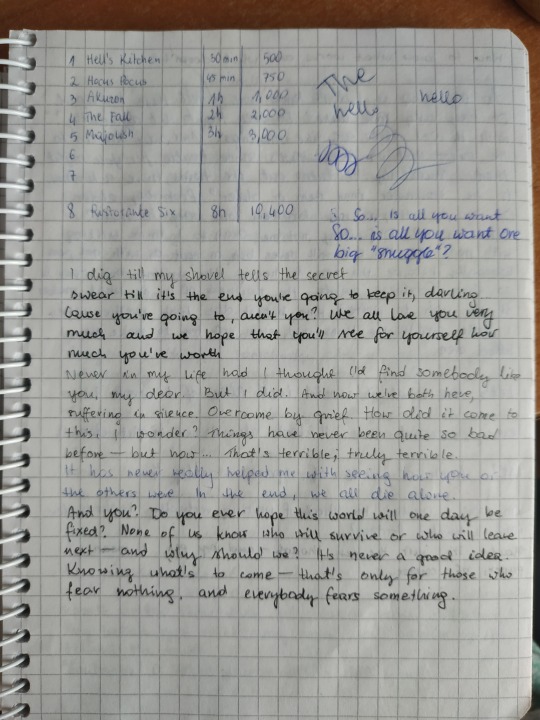 1 Hell's Kitchen 30 min 500
2 Hocus Pocus 45 min 750
3 Akuson 1h 1,000
4 The Fall 2h 2,000
5 Majoush 3h 3,000
6
7
8 Rustorance Six 8h 10,400
The
hello
hello
So... is all you want
So... is all you want one
big "snuggle"?
I dig till my shovel tells the secret
swear till it's the end you're going to keep it, darling
Cause you're going to, aren't you? We all love you very
much and we hope that you'll see for yourself how
much you've worth
Never in my life had I thought I'd find somebody like
you, my dear. But I did. And now we're both here,
suffering in silence. Overcome by grief. How did it come to
this, I wonder? Things have never been quite so bad
before — but now... That's terrible, truly terrible.
It has never really helped me with seeing how you or
the others were. In the end, we all die alone.
And you? Do you ever hope this world will one day be
fixed? None of us know who will survive or who will leave
next — and why should we? It's never a good idea.
Knowing what's to come — that's only for those who
fear nothing, and everybody fears something.